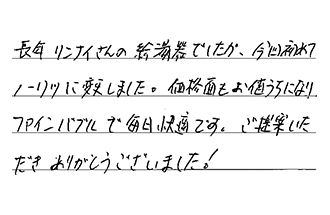 長年リンナイさんの給湯器でしたが、今回初めて
ノーリツに変えました。価格面もお値うちになり
ファインバブルで毎日快適です。ご提案いた
だきありがとうございました!